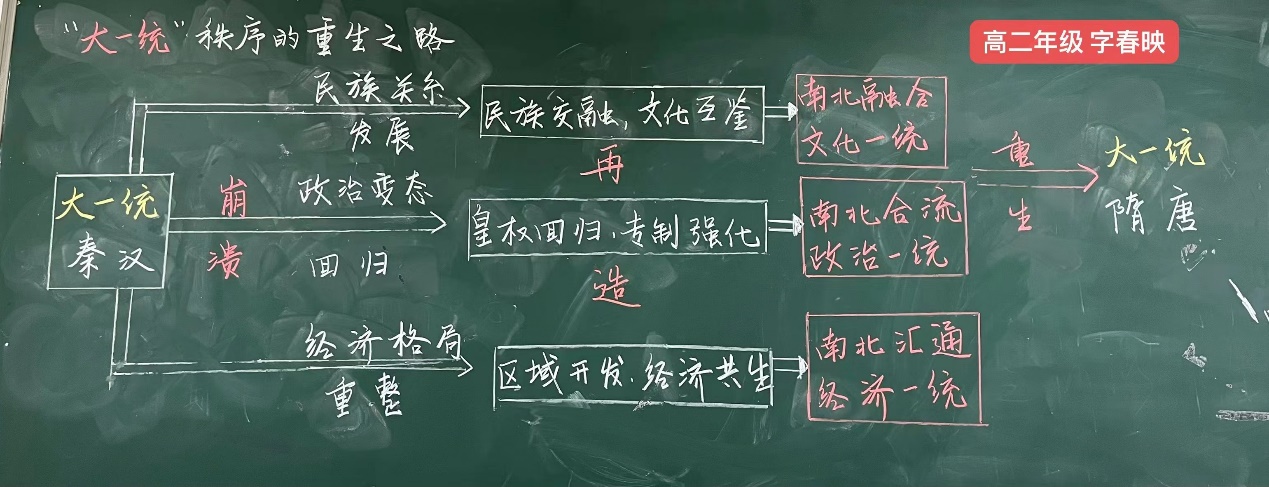 "大一统"秩序的重生之路
高二年级 字春映
民族关系
发展
民族交融,文化互鉴
南北融合
文化一统
大一统
秦汉
崩
溃
政治变态
回归
再
造
皇权回归、专制强化
南北合流
政治一统
重
生
大一统
隋唐
经济格局
重整
区域开发、经济共生
南北汇通
经济一统